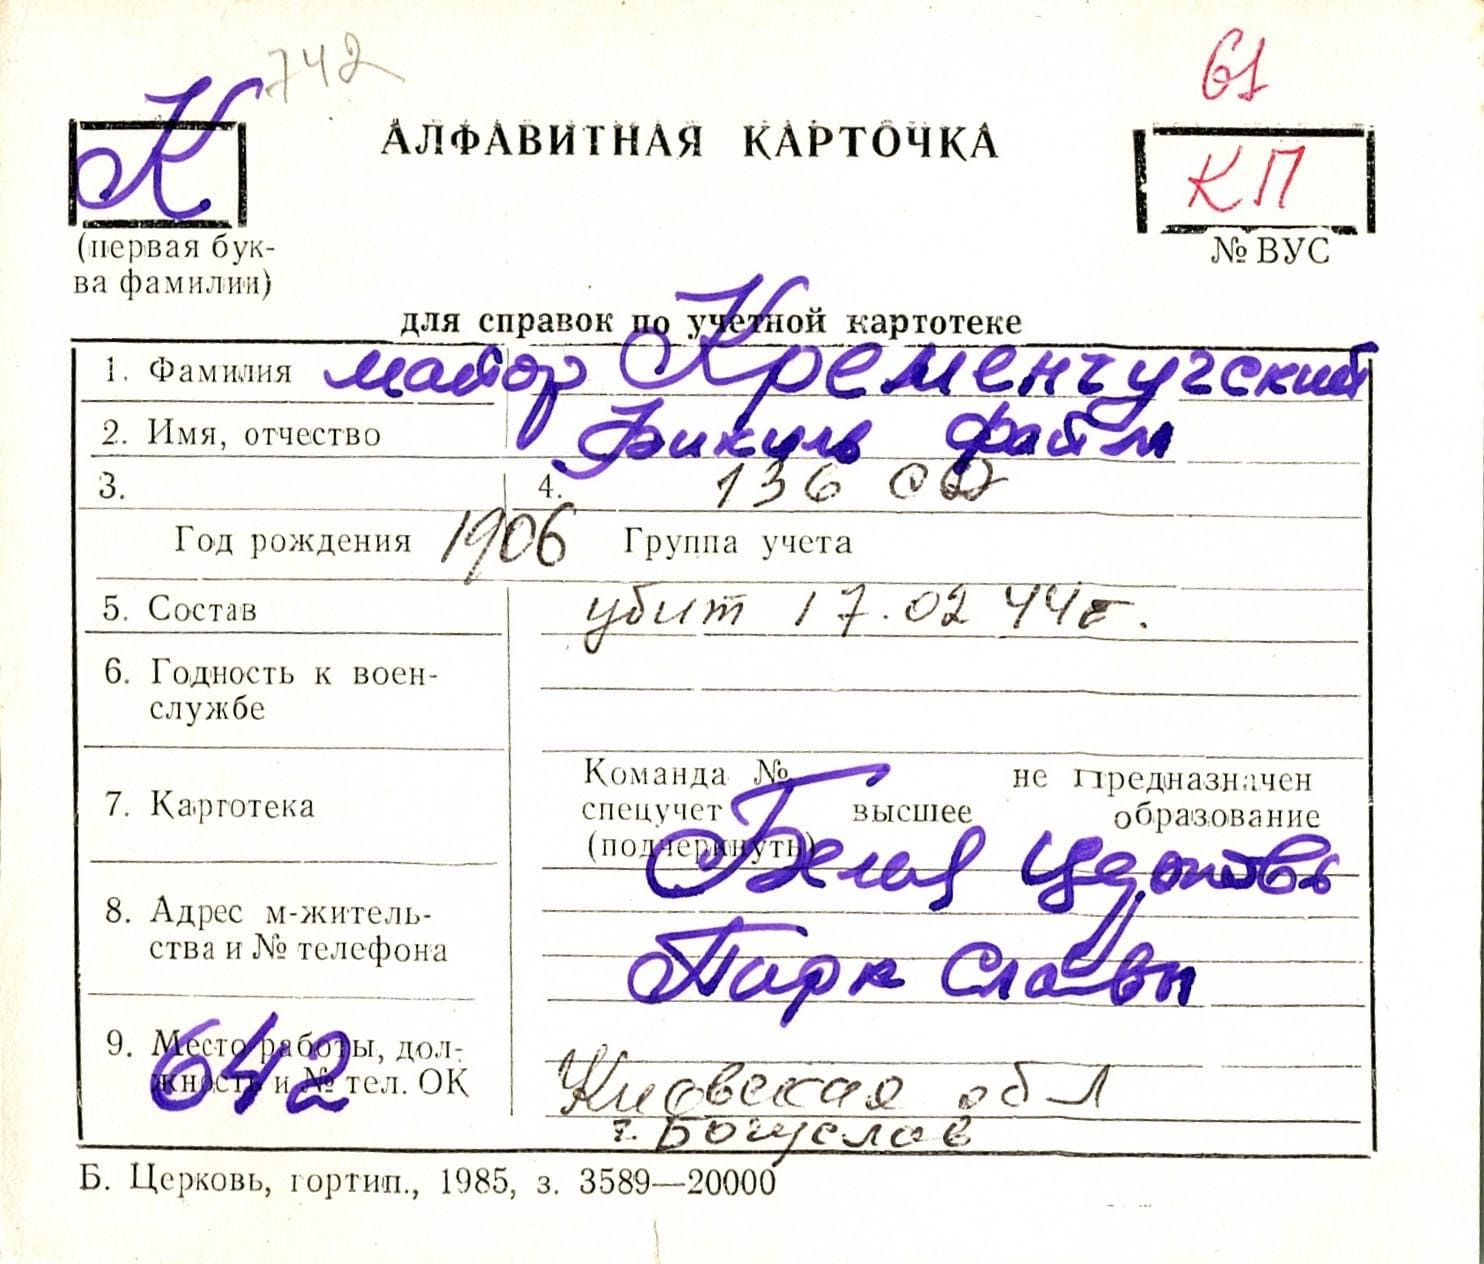 742
61
К
АЛФАВИТНАЯ КАРТОЧКА
КП
(первая бук-
ва фамилии)
№ ВУС
для справок по учетной картотеке
1. Фамилия майор Кременчугский
2. Имя, отчество Файл
3. 4. 136 сд
Год рождения 1906 Группа учета
5. Состав убит 17.02 44г.
6. Годность к воен-
службе
7. Картотека
Команда № не предназначен
спецучет высшее образование
(подчеркнуть)
Белая Церковь
8. Адрес м-житель-
ства и № телефона
Парк Славы
9. Место работы, дол-
жность и № тел. ОК
642
Киевская обл
г. Богуслав
Б. Церковь, гортип., 1985, з. 3589—20000